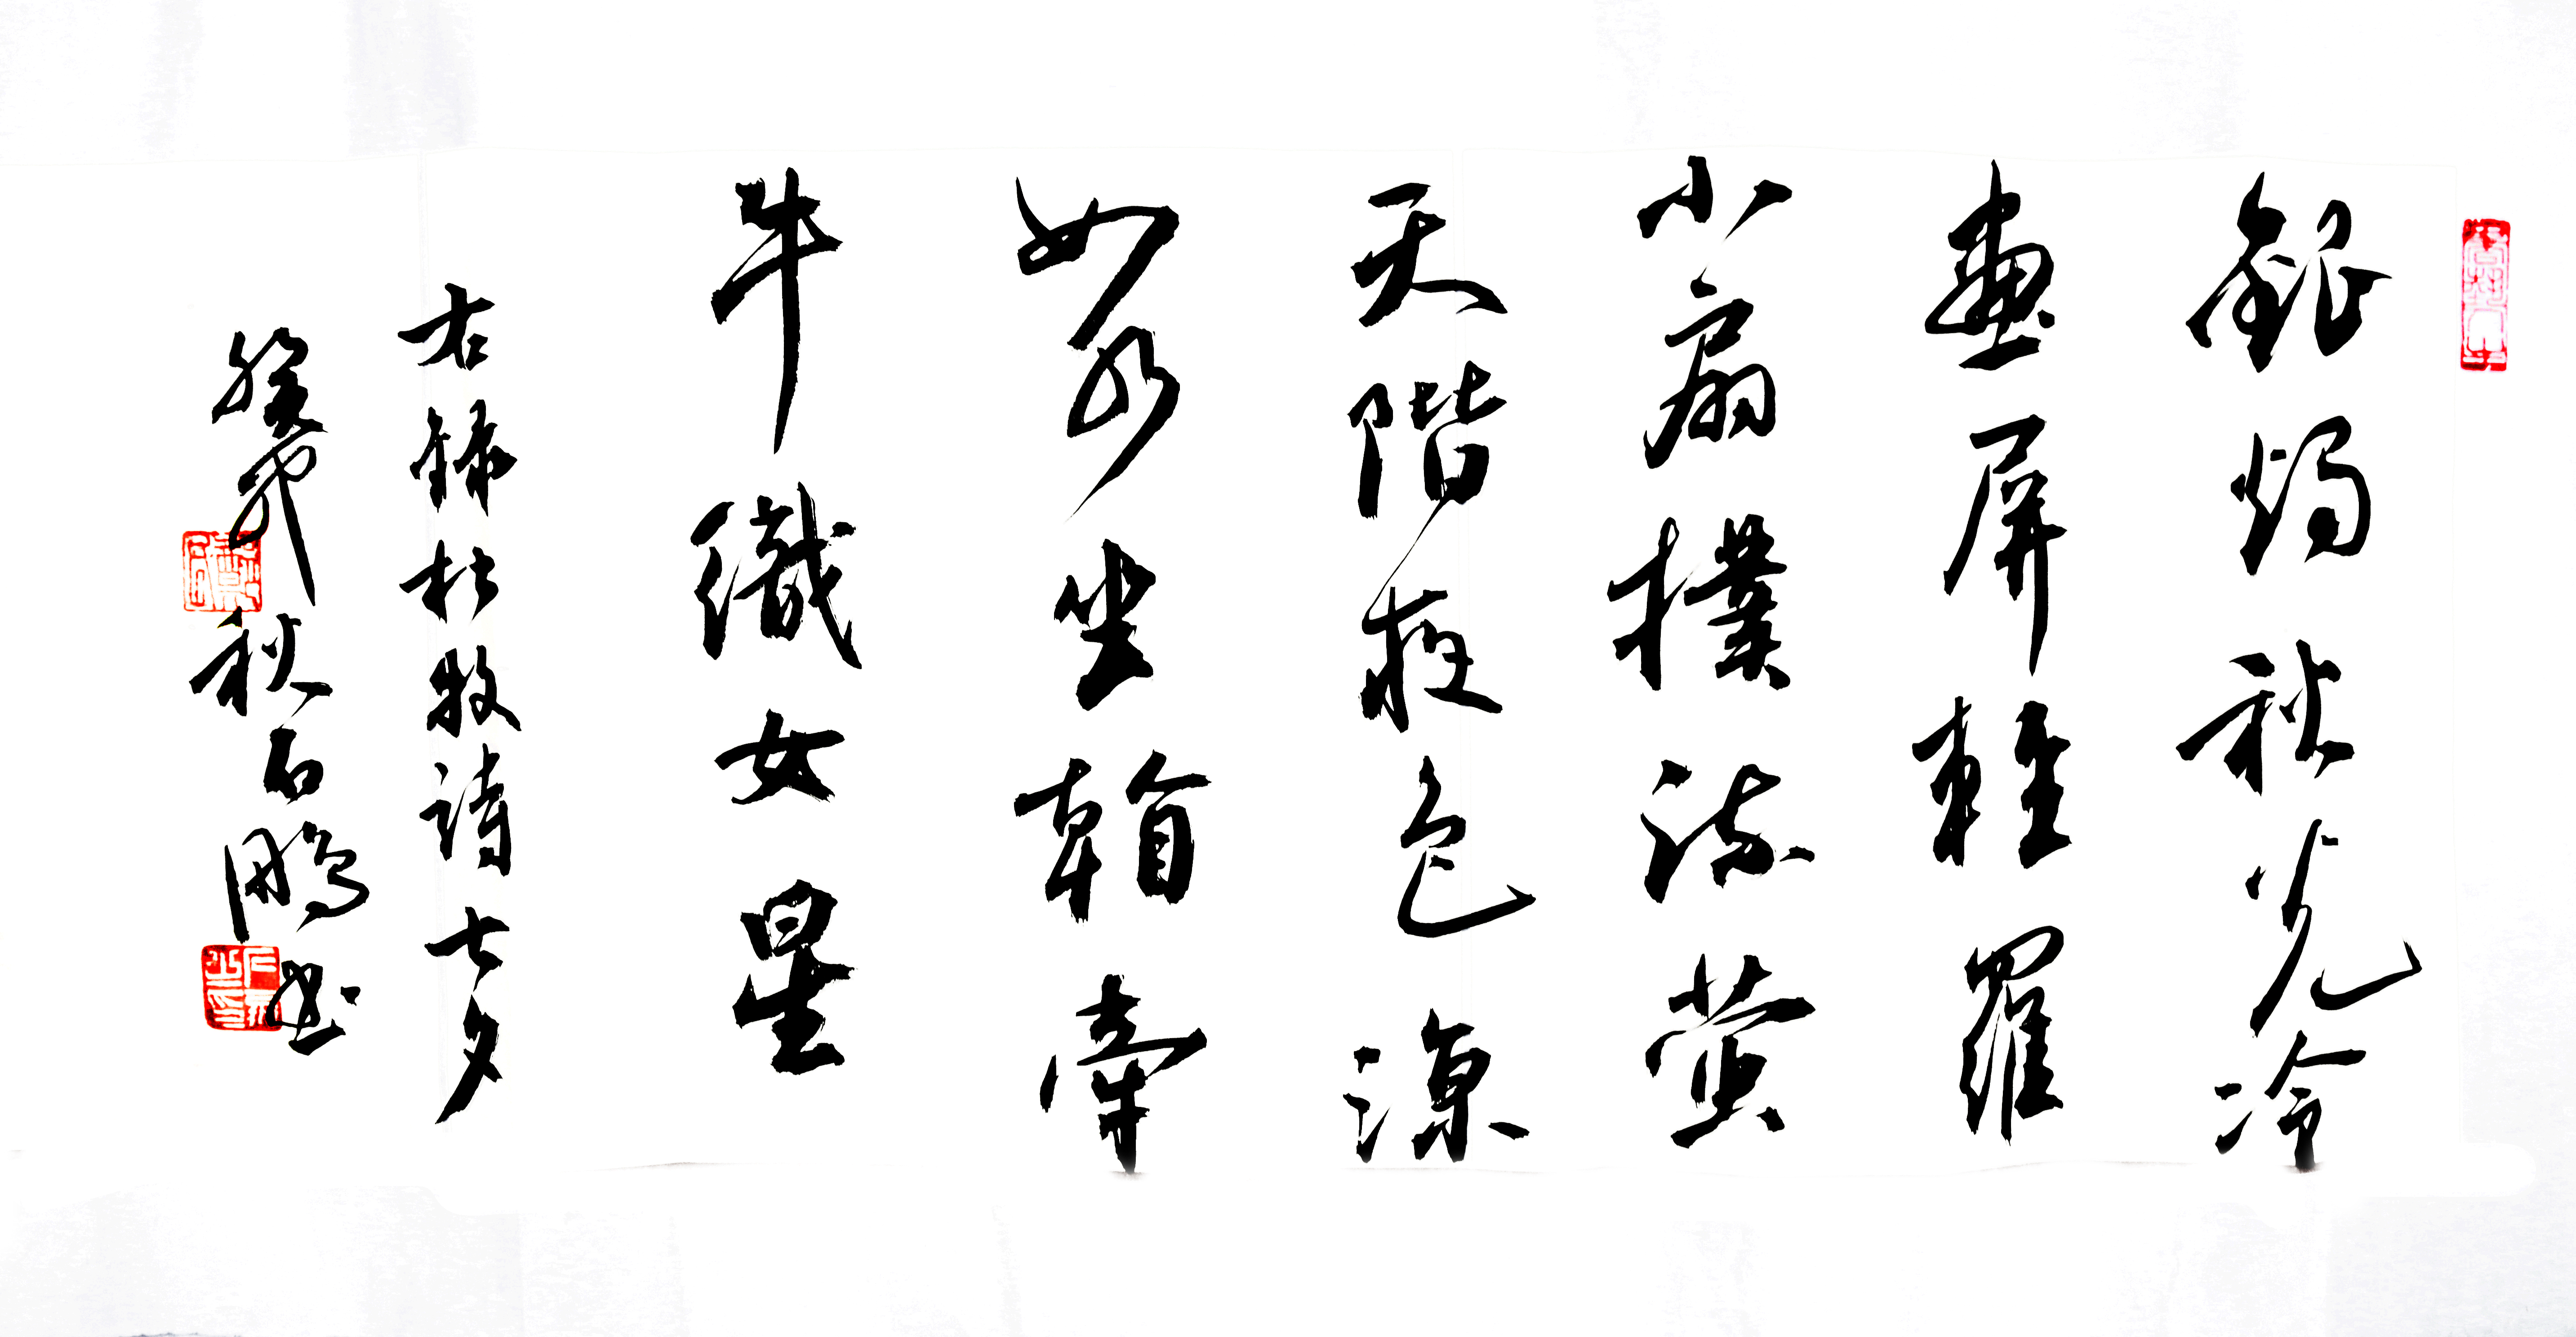 銀燭秋光冷
畫屏輕羅
小扇撲流螢
天階夜色涼
如水坐看牽
牛織女星
右錄杜牧詩七夕
癸卯秋石鵬書